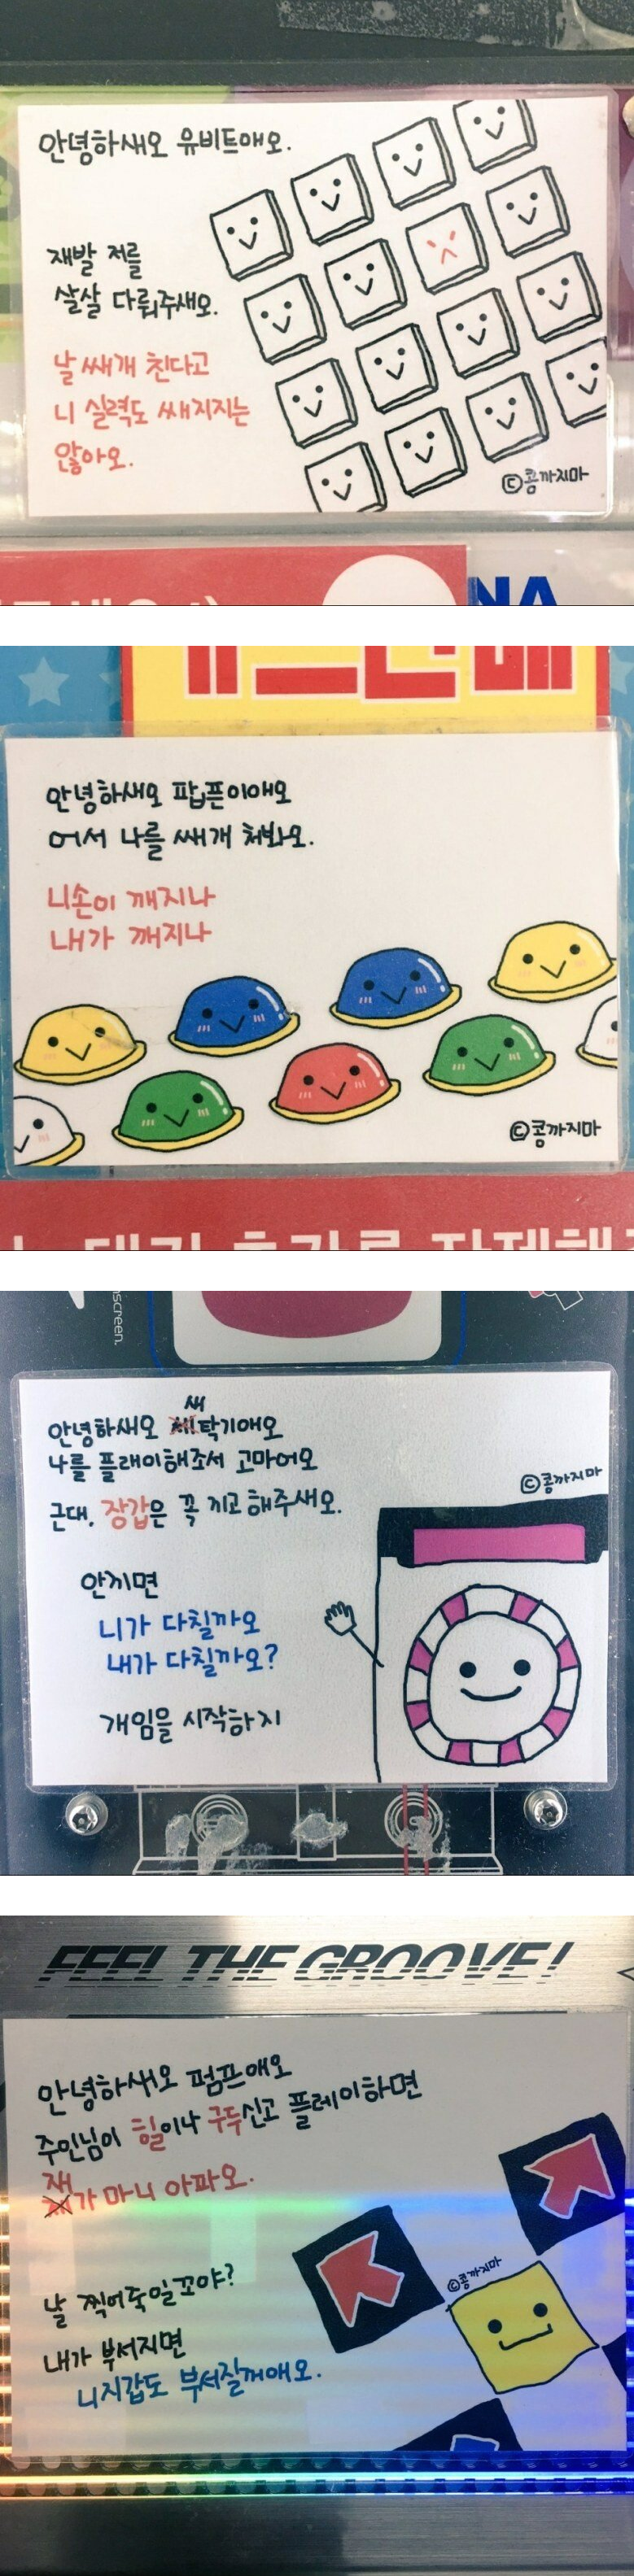 안녕하새오 유비트애오.
재발 저를
살살 다뤄주새오.
날 쌔개 친다고
니 실력도 쌔지지는
않아오.
ⓒ콩까지마
NA
안녕하새오 팝픈이애오
어서 나를 쌔개 처봐오.
니손이 깨지나
내가 깨지나
ⓒ콩까지마
screen.
새
안녕하새오 탁기애오
나를 플래이해조서 고마어오
ⓒ콩까지마
근대, 장갑은 꼭 끼고 해주새오.
안끼면
니가 다칠까오
내가 다칠까오?
개임을 시작하지
FEEL THE GROOVE!
안녕하새오 펌프애오
주인님이 힐이나 구두신고 플레이하면
재
가 마니 아파오.
ⓒ콩까지마
날 찍어죽일꼬야?
내가 부서지면
니지갑도 부서질꺼애오.